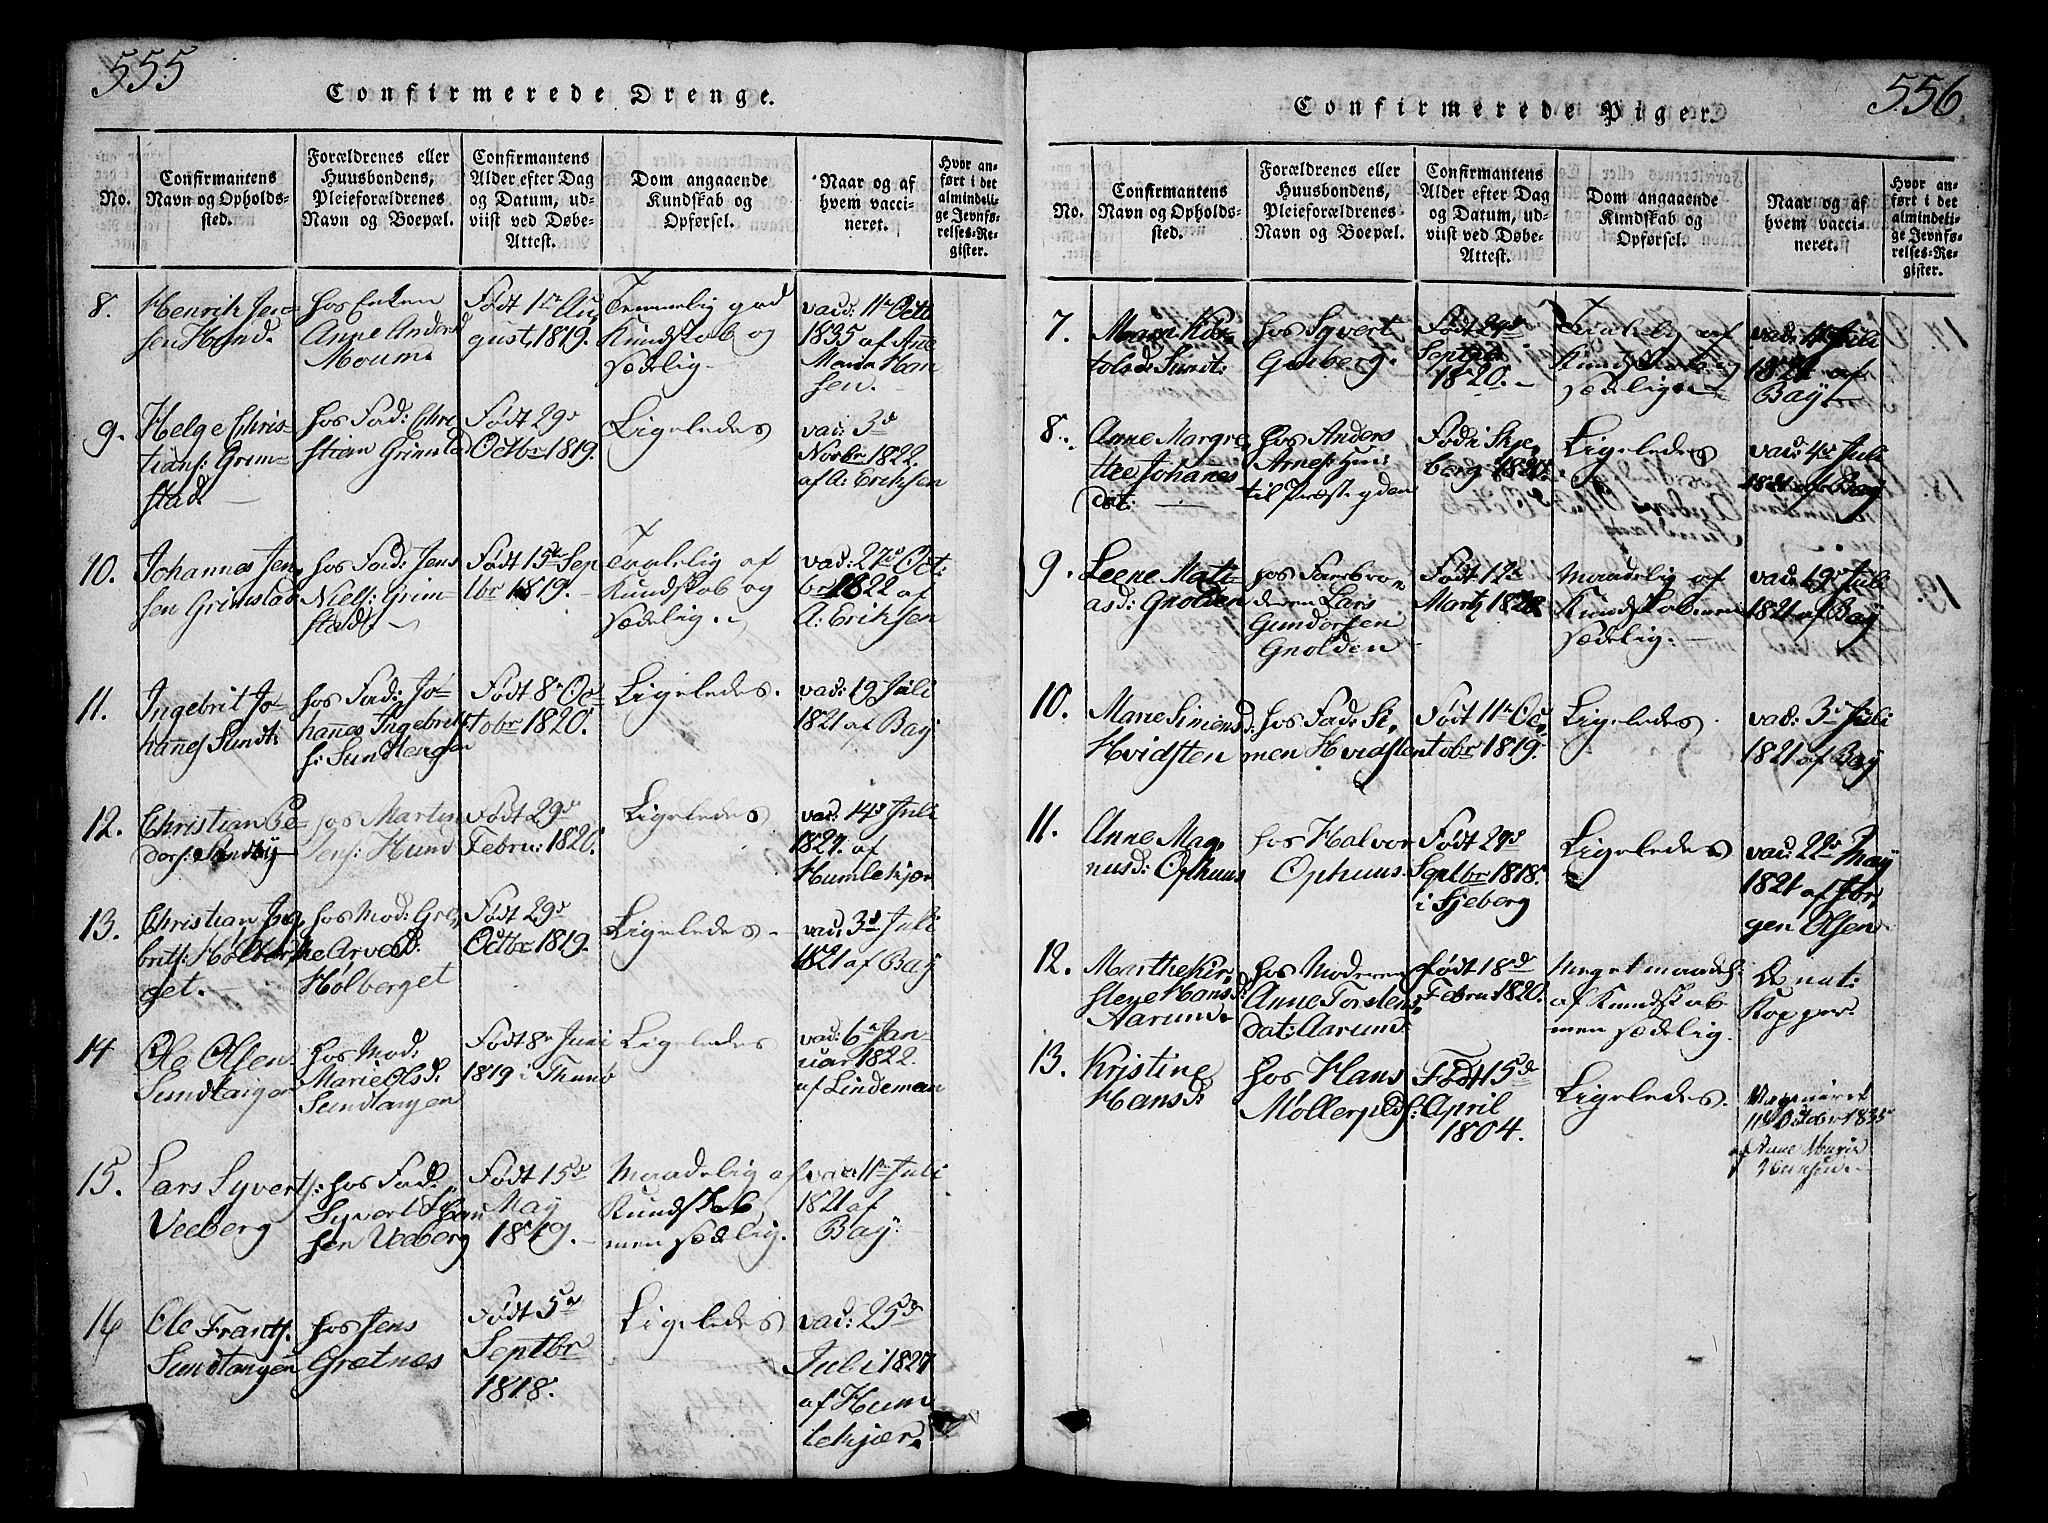 555
Confirmerede Drenge.
No.
Confirmantens
Navn og Opholds-
sted.
Forældrenes eller
Huusbondens,
Pleieforældrenes
Navn og Boepæl.
Confirmantens
Alder efter Dag
og Datum, ud-
viist ved Døbe-
Attest.
Dom angaaende
Kundskab og
Opførsel.
Naar og af
hvem vacci-
neret.
Hvor an-
ført i det
almindeli-
ge Jevnfø-
relses-Re-
gister.
8.
Henrik Jen-
sen Hund.
hos Enken
Anne Anders
Moum.
Født 1te Au
gust, 1819.
Temmelig god
Kundskab og
sædelig.
vac: 11te Octb
1835 af Ane
Maria Han
sen.
9.
Helge Chris-
tians: Grim-
stad
hos Fad: Chri
stian Grimstad
Født 29de
Octbr 1819.
Ligeledes
vac: 3de
Novbr 1822.
af A: Eriksen
10.
Johannes Jen
sen Grimstad
hos Fad: Jens
Niels: Grim-
stad
Født 15de Sep
tbr 1819.
Taalelig af
Kundskab og
sædelig.
vac: 27de Oct:
br 1822 af
A: Eriksen
11.
Ingebrit Jo-
hannes Sundt:
hos Fad: Jo-
hannes Ingebrit
s: Sundtangen
Født 8de Oc-
tobr 1820.
Ligeledes.
vac: 19 Juli
1821 af Baÿ
12.
Christian Pe-
ders: Sundbÿ
hos Martin
Jens: Hund
Født 29de
Febru: 1820.
Ligeledes
vac: 14de Juli
1827. af
Humlekjær
13.
Christian Ing
brits: Hølber
get.
hos Mod: Gre
the Arvesd:
Hølberget
Født 29de
Octbr 1819.
Ligeledes
vac: 3de Juli
1821 af Baÿ
14
Ole Olsen
Sundtangen
hos Mod:
Marie Olsd:
Sundtangen
Født 8de Juni
1819 i Thunø
Ligeledes
vac: 6te Jan-
uar 1822.
af Lindeman
15.
Lars Syvert
s: Veeberg
hos Fad:
Syvert Han
sen Veeberg
Født 15de
May
1819.
Maadelig af
Kundskab
men sædelig.
vac 11te Juli
1821 af
Baÿ.
16
Ole Frants.
Sundtangen
hos Jens
Grætnes
Født 5te
Septbr
1818.
Ligeledes
vac: 25de
Juli 1827
af Hum
lekjær.
556
Confirmerede Piger.
No.
Confirmantens
Navn og Opholds-
sted.
Forældrenes eller
Huusbondens,
Pleieforældrenes
Navn og Boepæl.
Confirmantens
Alder efter Dag
og Datum, ud-
viist ved Døbe-
Attest.
Dom angaaende
Kundskab og
Opførsel.
Naar og af
hvem vacci-
neret.
Hvor an-
ført i det
almindeli-
ge Jevnfø-
relses-Re-
gister.
7.
tolsd: Sundt:
hos Syvert
Født 29de
Septbr
1820.
Taalelig af
Kundskab og
sædelig
vac: 4de Juli
1821 af
Baÿ
8.
Anne Margre
the Johannes
dat:
hos Anders
til Præstegden
Født i Skje
berg 1820.
Ligeledes
vac: 4de Juli
1821 af Baÿ
9.
Leene Mati-
asd: Gnolden
hos Farbro
deren Lars
Gundersen
Gnolden
Født 12te
Martz 1820
Maadelig af
Kundskab men
sædelig.
vac: 19de Juli
1821 af Baÿ
10.
Marie Simensd:
Hvidsten
hos Fad: Si
men Hvidsten
Født 11te Oc
tobr 1819.
Ligeledes
vac: 3de Juli
1821 af Baÿ
11.
Anne Mag
nusd: Ophuus
hos Halvor
Ophuus
Født 29de
Septbr 1818.
i Sjeberg
Ligeledes
vac: 22de Maÿ
1821 af Jør
gen Olsen
12.
Marthe Kir
stene Hansd:
Aarum
hos Moderen
Anne Torstens
dat: Aarum
Født 18de
Febru 1820.
Meget maadel:
af Kundskab
men sædelig.
De nat:
Kopper.
13.
Kristine
Hansd:
hos Hans
Møllerpeds:
Født 15de
April
1804.
Ligeledes.
Vaccineret
11te October 1835
af Anne Maria
Hansen